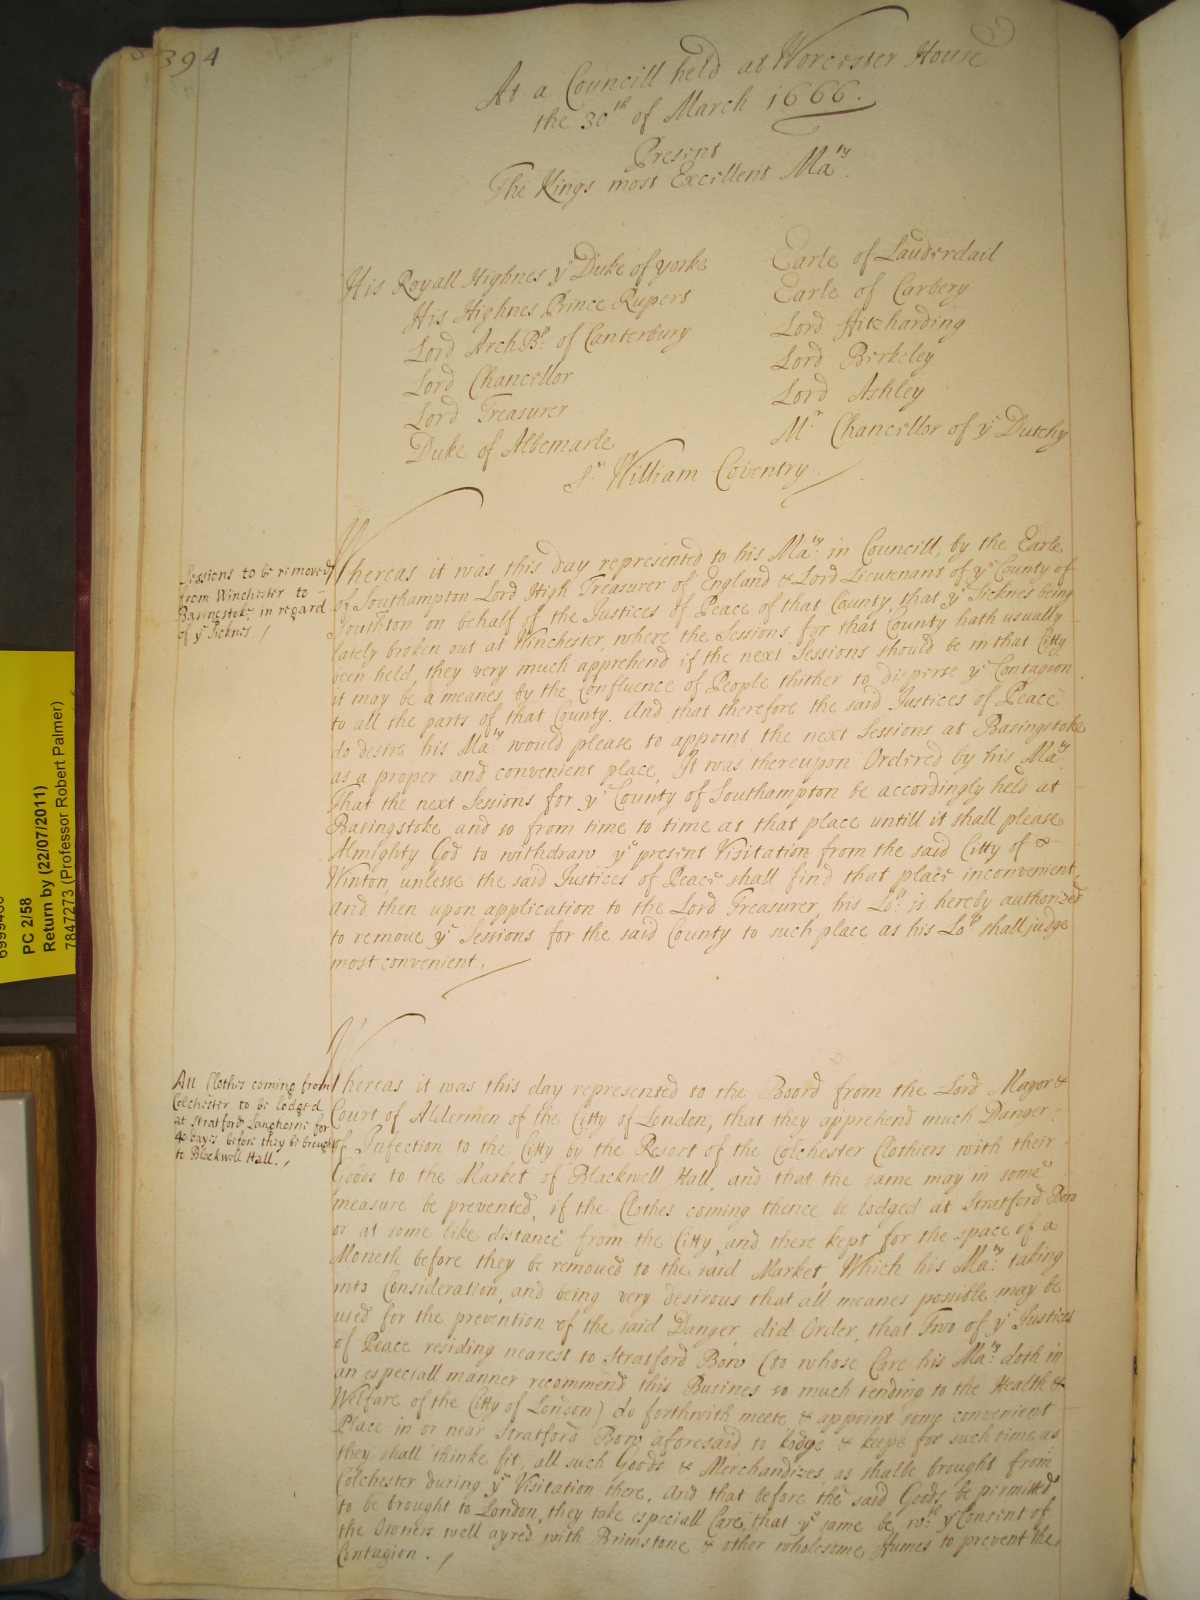 394
At a Councill held at Worcester House
the 30th of March 1666.
Present
The Kings most Excellent Maty.
His Royall Highnes ye Duke of yorke
His Highnes Prince Rupert
Lord ArchBp. of Canterbury
Lord Chancellor
Lord Treasurer
Duke of Albemarle
Earle of Lauderdail
Earle of Carbery
Lord Fitzharding
Lord Berkeley
Lord Ashley
Mr. Chancellor of ye Dutchy
Sr. William Coventry
Sessions to be removed
from Winchester to
Basingstoke in regard
of ye Sicknes.
Whereas it was this day represented to his Maty. in Councill, by the Earle
of Southampton Lord High Treasurer of England & Lord Lieutenant of ye County of
Southton on behalf of the Justices of Peace of that County, that ye Sicknes being
lately broken out at Winchester, where the Sessions for that County hath usually
been held, they very much apprehend if the next Sessions should be in that Citty
it may be a meanes by the Confluence of People thither to disperse ye Contagion
to all the parts of that County. And that therefore the said Justices of Peace
do desire his Maty would please to appoint the next Sessions at Basingstoke
as a proper and convenient place, It was thereupon Ordered by his Maty.
That the next Sessions for ye County of Southampton be accordingly held at
Basingstoke and so from time to time at that place untill it shall please
Almighty God to withdraw ye present Visitation from the said Citty of
Winton, unlesse the said Justices of Peace shall find that place inconvenient,
And then upon application to the Lord Treasurer, his Lop. is hereby authorized
to remove ye Sessions for the said County to such place as his Lop shall judge
most convenient.
All Clothes coming from
Colchester to be lodged
at Stratford Langhorne for
40 dayes before they be brought
to Blackwell Hall.
Whereas it was this day represented to the Board from the Lord Mayor &
Court of Aldermen of the Citty of London, that they apprehend much Danger
of Infection to the Citty by the Resort of the Colchester Clothiers with their
Goods to the Market of Blackwell Hall, and that the same may in some
measure be prevented, if the Clothes coming thence be lodged at Stratford Bow
or at some like distance from the Citty, and there kept for the space of a
Moneth before they be removed to the said Market, Which his Maty. taking
into Consideration, and being very desirous that all meanes possible may be
used for the prevention of the said Danger, did Order, that Two of ye Justices
of Peace residing nearest to Stratford Bow (to whose Care his Maty. doth in
an especiall manner recommend this Busines so much tending to the Health &
Welfare of the Citty of London) do forthwith meete & appoint some convenient
Place in or near Stratford Bow aforesaid to lodge & keepe for such time as
they shall thinke fit, all such Goods & Merchandizes, as shalbe brought from
Colchester during ye Visitation there. And that before the said Goods be permitted
to be brought to London, they take especiall Care, that ye same be wth. ye Consent of
the Owners well ayred with Brimstone & other wholesome fumes to prevent the
Contagion.
PC 2/58
Return by (22/07/2011)
7847273 (Professor Robert Palmer)